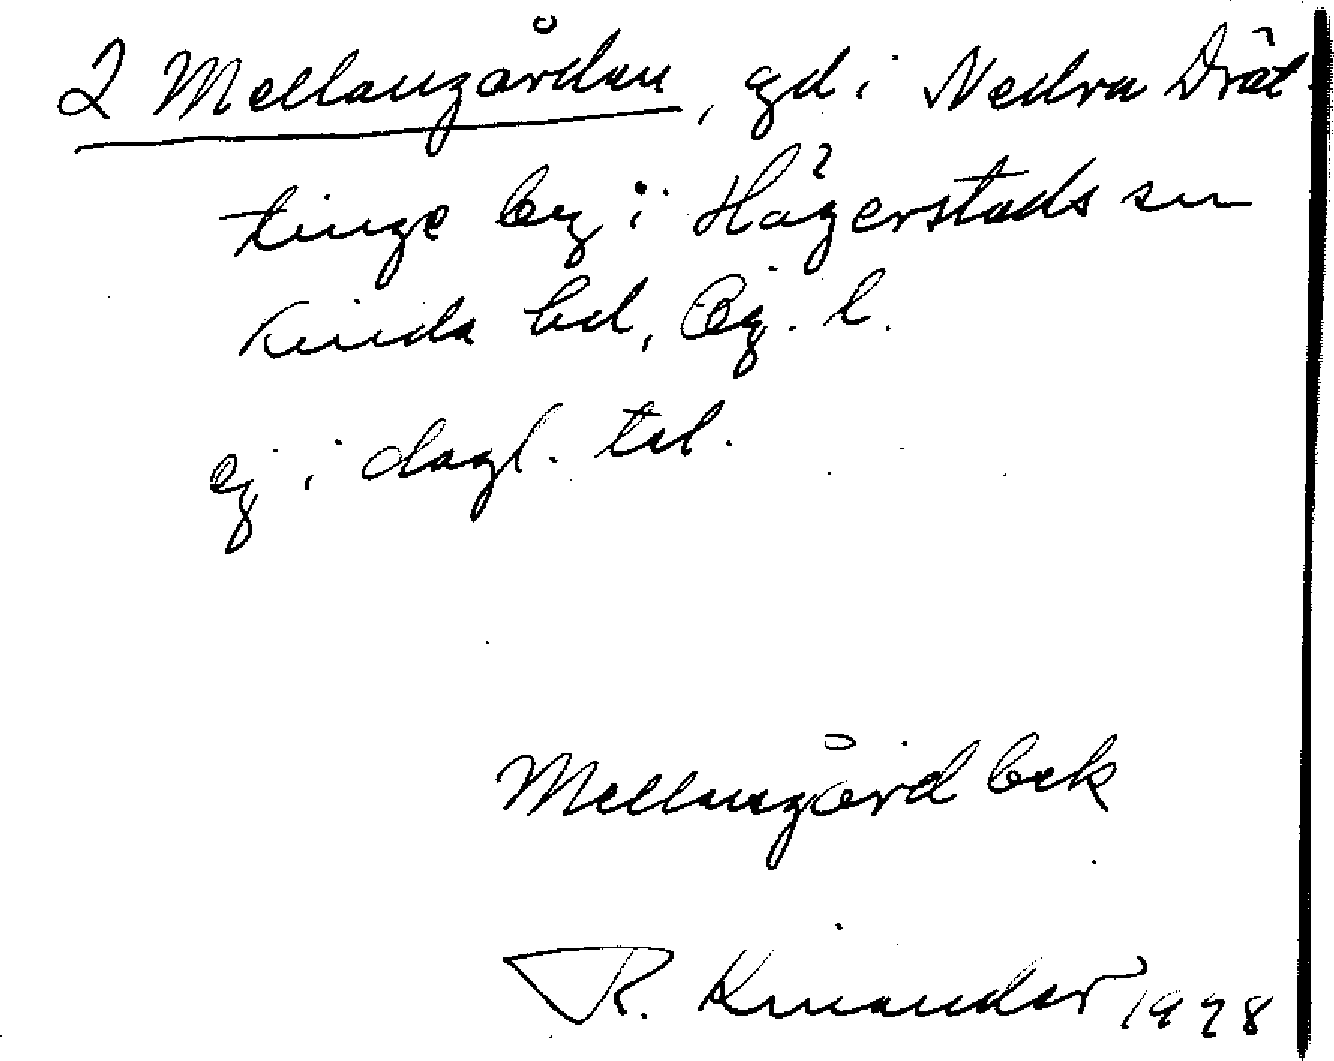 2 Mellangården, gd i Nedra Drät-
tinge by i Hägerstads sn
Kinda hd, Ög. l.
ej i dagl. tal.
Mellangård bek
R. Kinander 1978